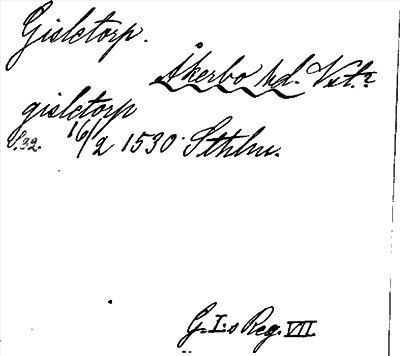 Gisletorp.
Åkerbo hd. Vstm.
gisletorp
S.32. 16/2 1530 Sthlm.
G. I:s Reg. VII.